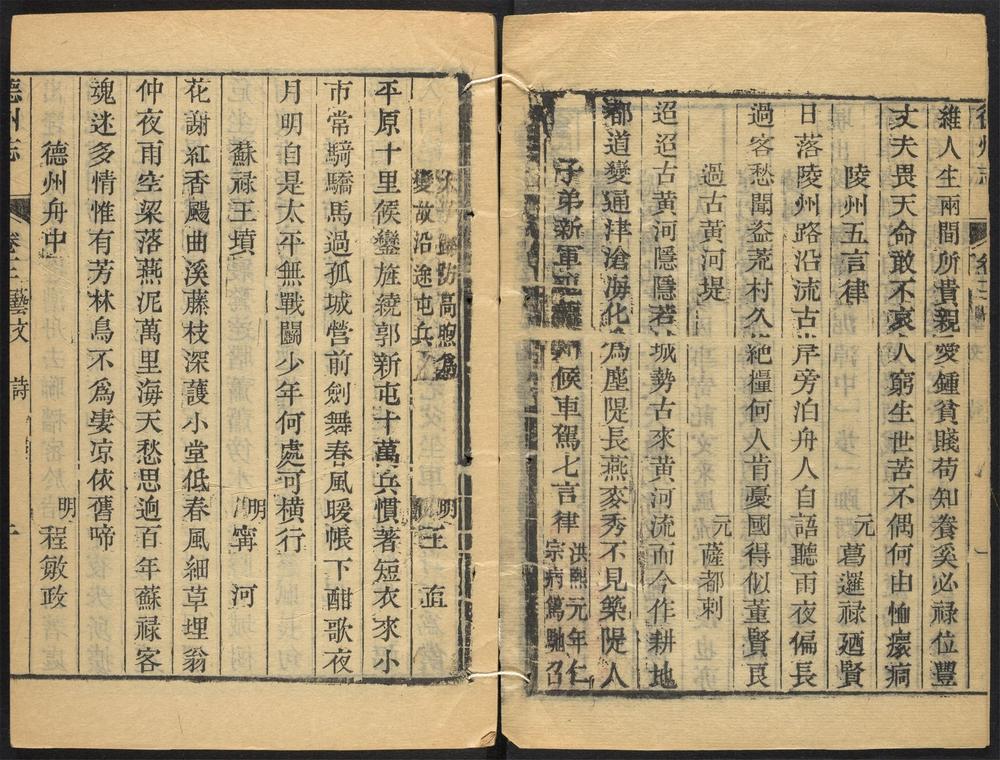 雖人生兩間所貴親愛鍾貧賤苟知養奚必祿位豐
丈夫畏天命敢不哀人窮生世苦不偶何由恤瘝痌
陵州五言律
元 葛邏祿廼賢
日落陵州路沿流古岸旁泊舟人自語聽雨夜偏長
過客愁聞盜荒村久絕糧何人肯憂國得似董賢良
過古黃河堤
元 薩都剌
迢迢古黃河隱隱若城勢古來黃河流而今作耕地
都道變通津滄海化為塵隄長燕麥秀不見築隄人
子弟新軍候車駕七言律
洪熙元年仁
宗病篤馳召
防高煦為
變故沿途屯兵
明 王
平原十里候鑾旌繞郭新屯十萬兵慣著短衣來小
市常騎驕馬過孤城營前劍舞春風暖帳下酣歌夜
月明自是太平無戰鬬少年何處可橫行
蘇祿王墳
明 甯河
花謝紅香颺曲溪藤枝深護小堂低春風細草埋翁
仲夜雨空梁落燕泥萬里海天愁思迥百年蘇祿客
魂迷多情惟有芳林鳥不為凄凉依舊啼
德州舟中
明 程敏政
德州志
卷十二 藝文 詩